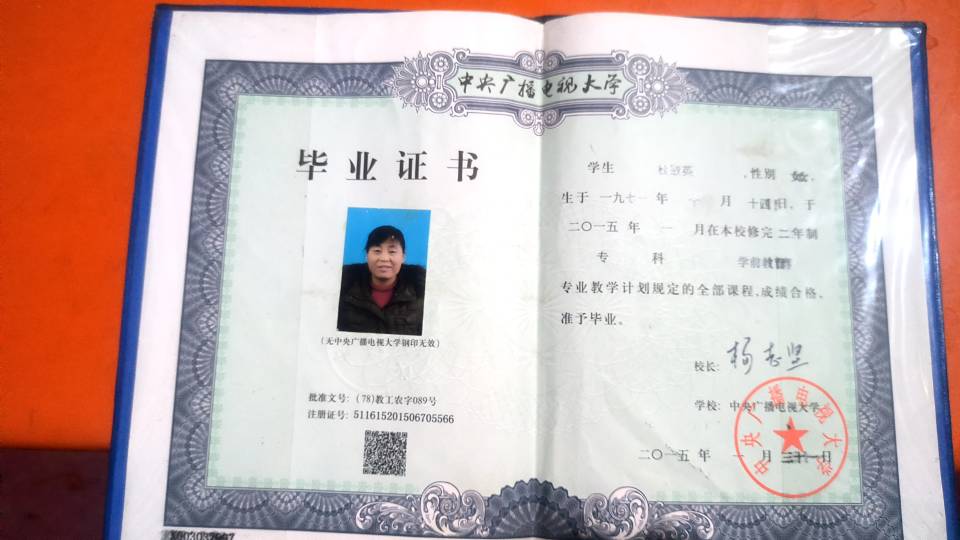 中央广播电视大学
毕业证书
(无中央广播电视大学钢印无效)
批准文号: (78)教工农字089号
注册证号: 511615201506705566
学生 性别
生于 一九七一年 月 日, 于
二〇一五年 一 月在本校修完 二年制
专 科 学前教育
专业教学计划规定的全部课程, 成绩合格,
准予毕业。
校长: 杨志坚
学校: 中央广播电视大学
二〇一五年 一 月三十一日
中央广播电视大学